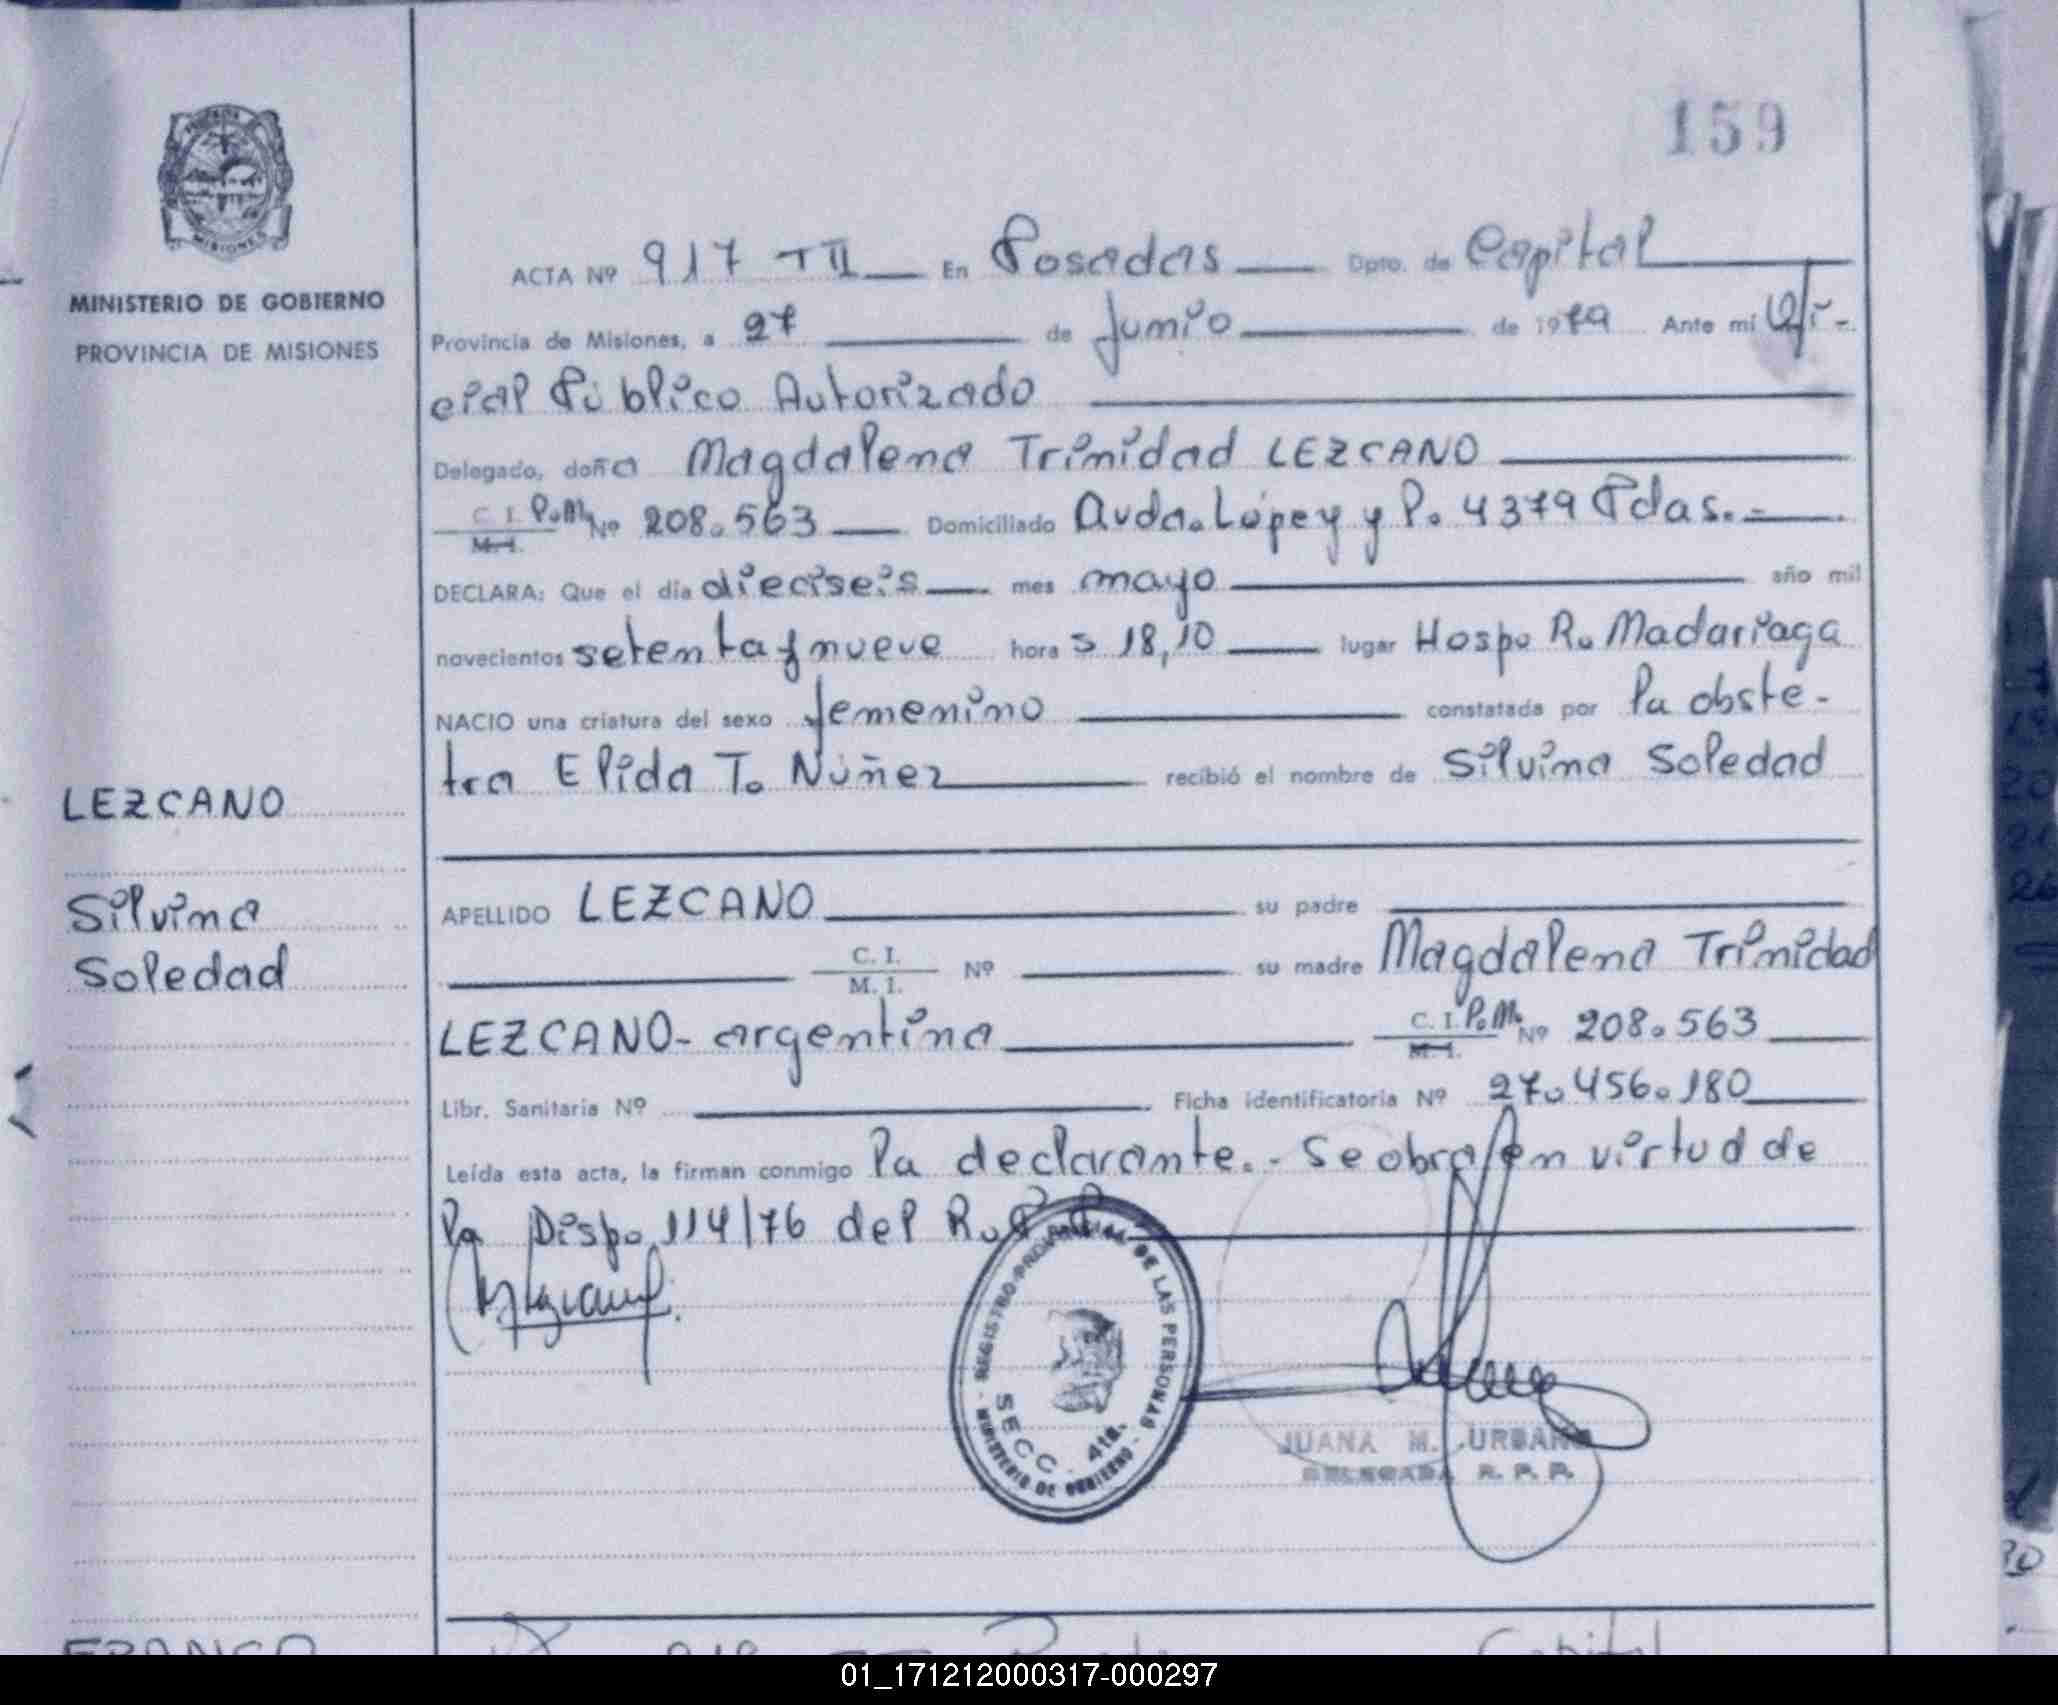 159
MINISTERIO DE GOBIERNO
PROVINCIA DE MISIONES
ACTA Nº 917 TII En Posadas Dpto. de Capital
Provincia de Misiones, a 27 de Junio de 1979 Ante mí Ofi-
cial Público Autorizado
Delegado, doña Magdalena Trinidad LEZCANO
C. I. P.M. Nº 208.563 Domiciliado Avda. López y P. 4379 Pdas.-
M. I.
DECLARA: Que el día dieciseis mes mayo año mil
novecientos setenta y nueve hora s 18,10 lugar Hosp. R. Madariaga
NACIO una criatura del sexo femenino constatada por la obste-
tra Elida T. Núñez recibió el nombre de Silvina Soledad
LEZCANO
Silvina
Soledad
APELLIDO LEZCANO su padre
C. I. Nº su madre Magdalena Trinidad
M. I.
LEZCANO- argentina C. I. P.M. Nº 208.563
M. I.
Libr. Sanitaria Nº Ficha identificatoria Nº 27.456.180
Leída esta acta, la firman conmigo la declarante.- Se obra en virtud de
la Disp. 114/76 del R.P.P.
REGISTRO PROVINCIAL DE LAS PERSONAS
MINISTERIO DE GOBIERNO
SECC. 4ta.
JUANA M. URBANO
DELEGADA R. P. P.
FRANCO
01_171212000317-000297